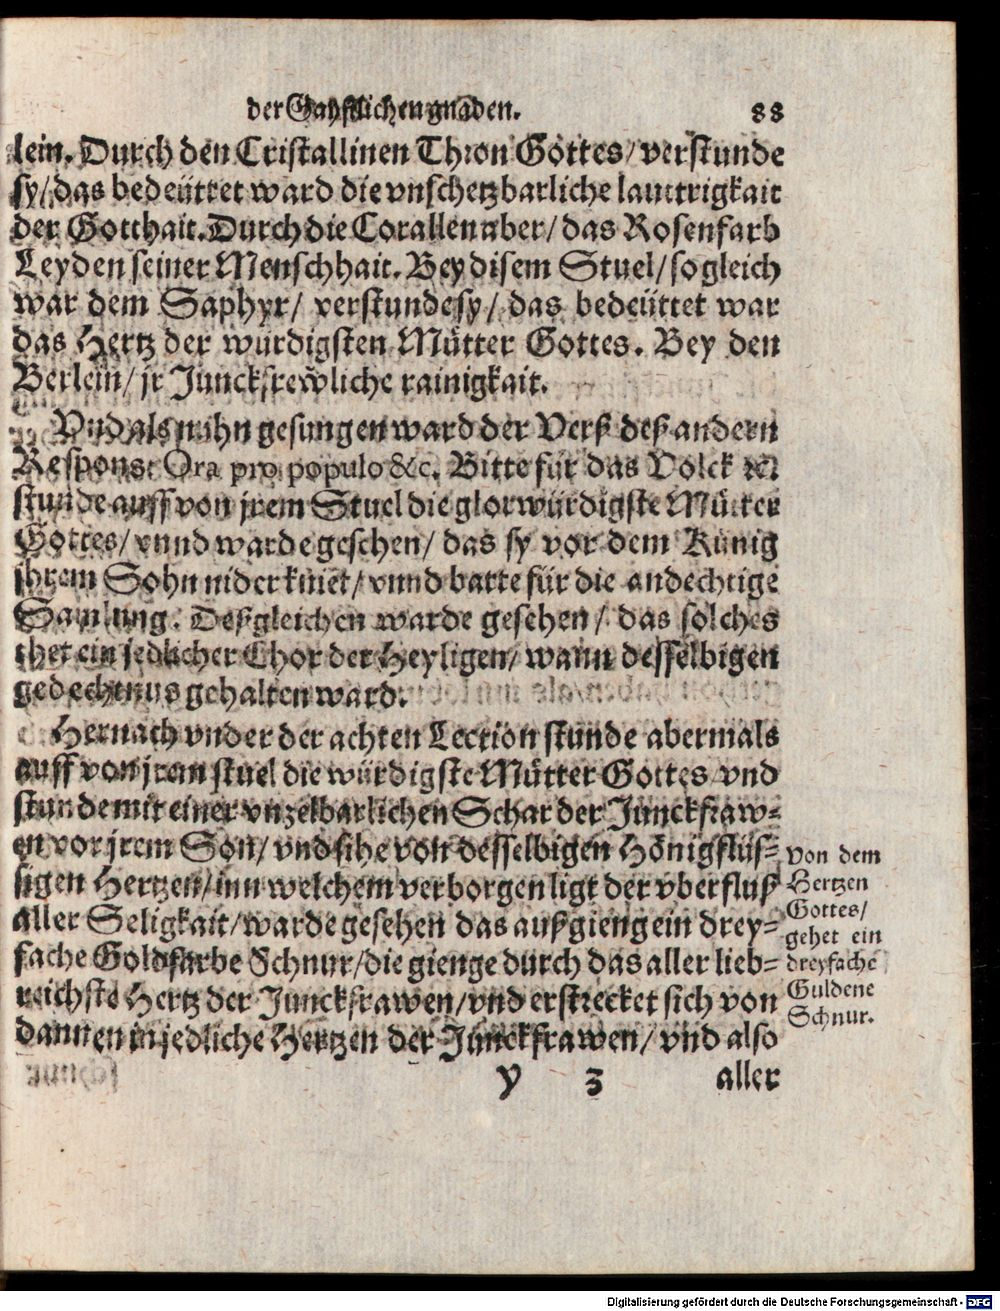 der Gayſtlichen gnaden. 88
lein. Durch den Criſtallinen Thron Gottes/ verſtunde
ſy/ das bedeüttet ward die vnſchetzbarliche lauttrigkait
der Gotthait. Durch die Corallen aber/ das Roſenfarb
Leyden ſeiner Menſchhait. Bey diſem Stuel/ ſo gleich
war dem Saphyr/ verſtunde ſy/ das bedeüttet war
das Hertz der würdigſten Mütter Gottes. Bey den
Berlein/ jr Junckfrewliche rainigkait.
Vnd als nuhn geſungen ward der Verß deß andern
Respons: Ora pro populo &c. Bitte für das Volck ꝛc.
ſtunde auff von jrem Stuel die glorwürdigſte Mütter
Gottes/ vnnd warde geſehen/ das ſy vor dem Künig
jhrem Sohn nider kniet/ vnnd batte für die andechtige
Samlung. Deßgleichen warde geſehen/ das ſolches
thet ein jedlicher Chor der Heyligen/ wann deſſelbigen
gedechtnus gehalten ward.
Hernach vnder der achten Lection ſtunde abermals
auff von jrem ſtuel die würdigſte Mütter Gottes vnd
ſtunde mit einer vnzelbarlichen Schar der Junckfraw-
en vor jrem Son/ vnd ſihe von deſſelbigen Hönigflüſ-
ſigen Hertzen/ inn welchem verborgen ligt der vberfluß
aller Seligkait/ warde geſehen das außgieng ein drey-
fache Goldfarbe Schnur/ die gienge durch das aller lieb-
reichſte Hertz der Junckfrawen/ vnd erſtrecket ſich von
dannen in jedliche Hertzen der Junckfrawen/ vnd alſo
Von dem
Hertzen
Gottes/
gehet ein
dreyfache
Guldene
Schnur.
y 3 aller
Digitalisierung gefördert durch die Deutsche Forschungsgemeinschaft - DFG